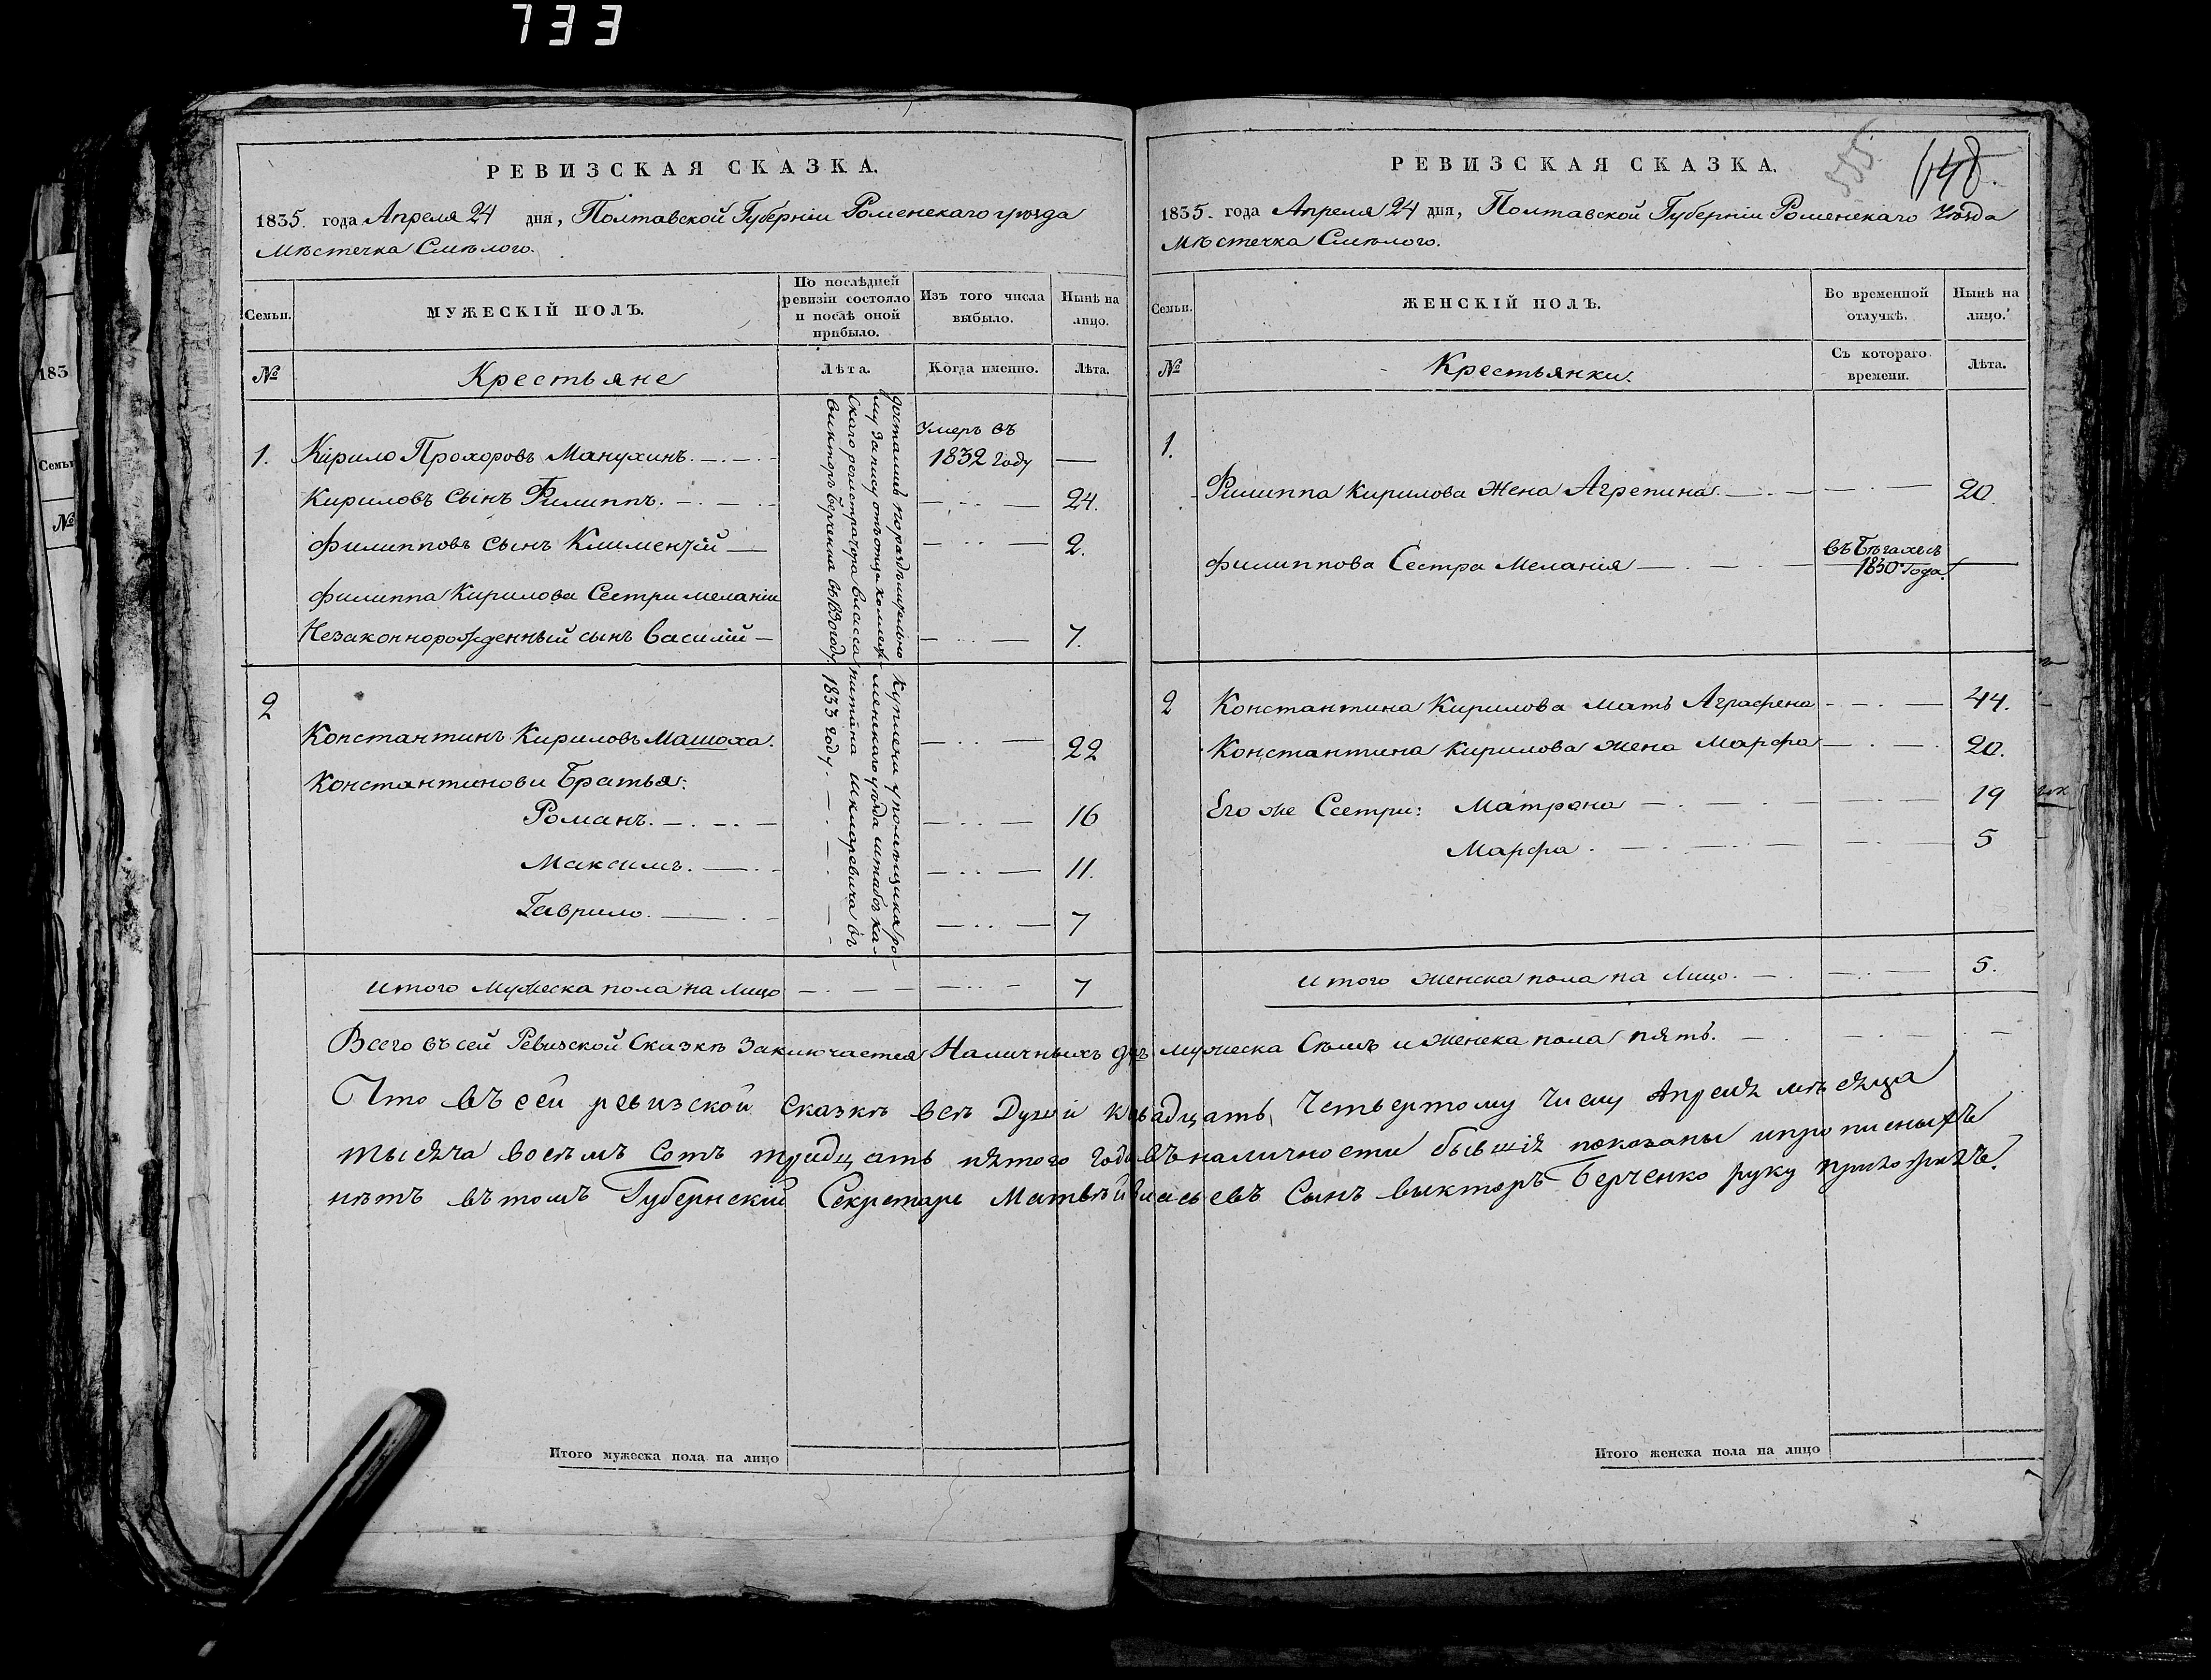 733
РЕВИЗСКАЯ СКАЗКА.
1835. года Апреля 24 дня, Полтавской Губерніи Роменскаго уѣзда
Мѣстечка Смѣлого.
Семьи.
МУЖЕСКІЙ ПОЛЪ.
По послѣдней ревизіи состояло и послѣ оной прибыло.
Изъ того числа выбыло.
Нынѣ на лицо.
№
Крестьяне
Лѣта.
Когда именно.
Лѣта.
1. Кирило Прохоровъ Манухинъ. Умеръ въ 1832 году
Кириловъ сынъ Филиппъ. 24.
Филипповъ сынъ Климентій 2.
Филиппа Кирилова Сестри меланіи
Незаконнорожденный сынъ Василій 7.
достались по раздѣльно
му запису отъ отца коллеж
скаго регистратора Власса
Викторъ Берченка въ 1830 году.
2
Константинъ Кириловъ Машоха. 22
Константинови Братья:
Романъ. 16
Максимъ. 11.
Гаврило. 7
Куплени у помѣщика Ро-
менскаго уѣзда штабсъ ка-
питана Шкляревича въ
1833 году.
Итого мужеска пола на лицо 7
РЕВИЗСКАЯ СКАЗКА.
555.
648.
1835. года Апреля 24 дня, Полтавской Губерніи Роменскаго Уѣзда
Мѣстечка Смѣлого.
Семьи.
ЖЕНСКІЙ ПОЛЪ.
Во временной отлучкѣ.
Нынѣ на лицо.
№
Крестьянки.
Съ котораго времени.
Лѣта.
1.
Филиппа Кирилова Жена Агрепина. 20.
Филиппова Сестра Меланія въ Бѣгахъ съ 1830 года.
2 Константина Кирилова мать Аграфена 44.
Константина Кирилова жена Марфа 20.
Его же Сестри: Матрона 19
Марфа. 5
Итого женска пола на лицо. 5.
Всего въ сей Ревизской Сказкѣ Заключается Наличныхъ душъ мужеска Семь и женска пола пять.
Что въ сей ревизской сказкѣ всѣ Души к двадцать Четвертому Числу Апреля мѣсяца
тысяча восемъ сотъ тридцать пятого года въ наличности бывшія показаны и прописныхъ
нѣтъ въ томъ Губернскій Секретарь Матвѣй Власьевъ Сынъ Викторъ Берченко руку приложилъ.
Итого мужеска пола на лицо
Итого женска пола на лицо
183
Семьи
№